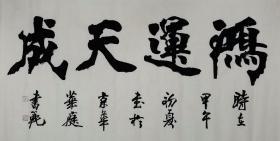 鴻運天成
時在
甲午
初夏
書於
京華
華庭
書